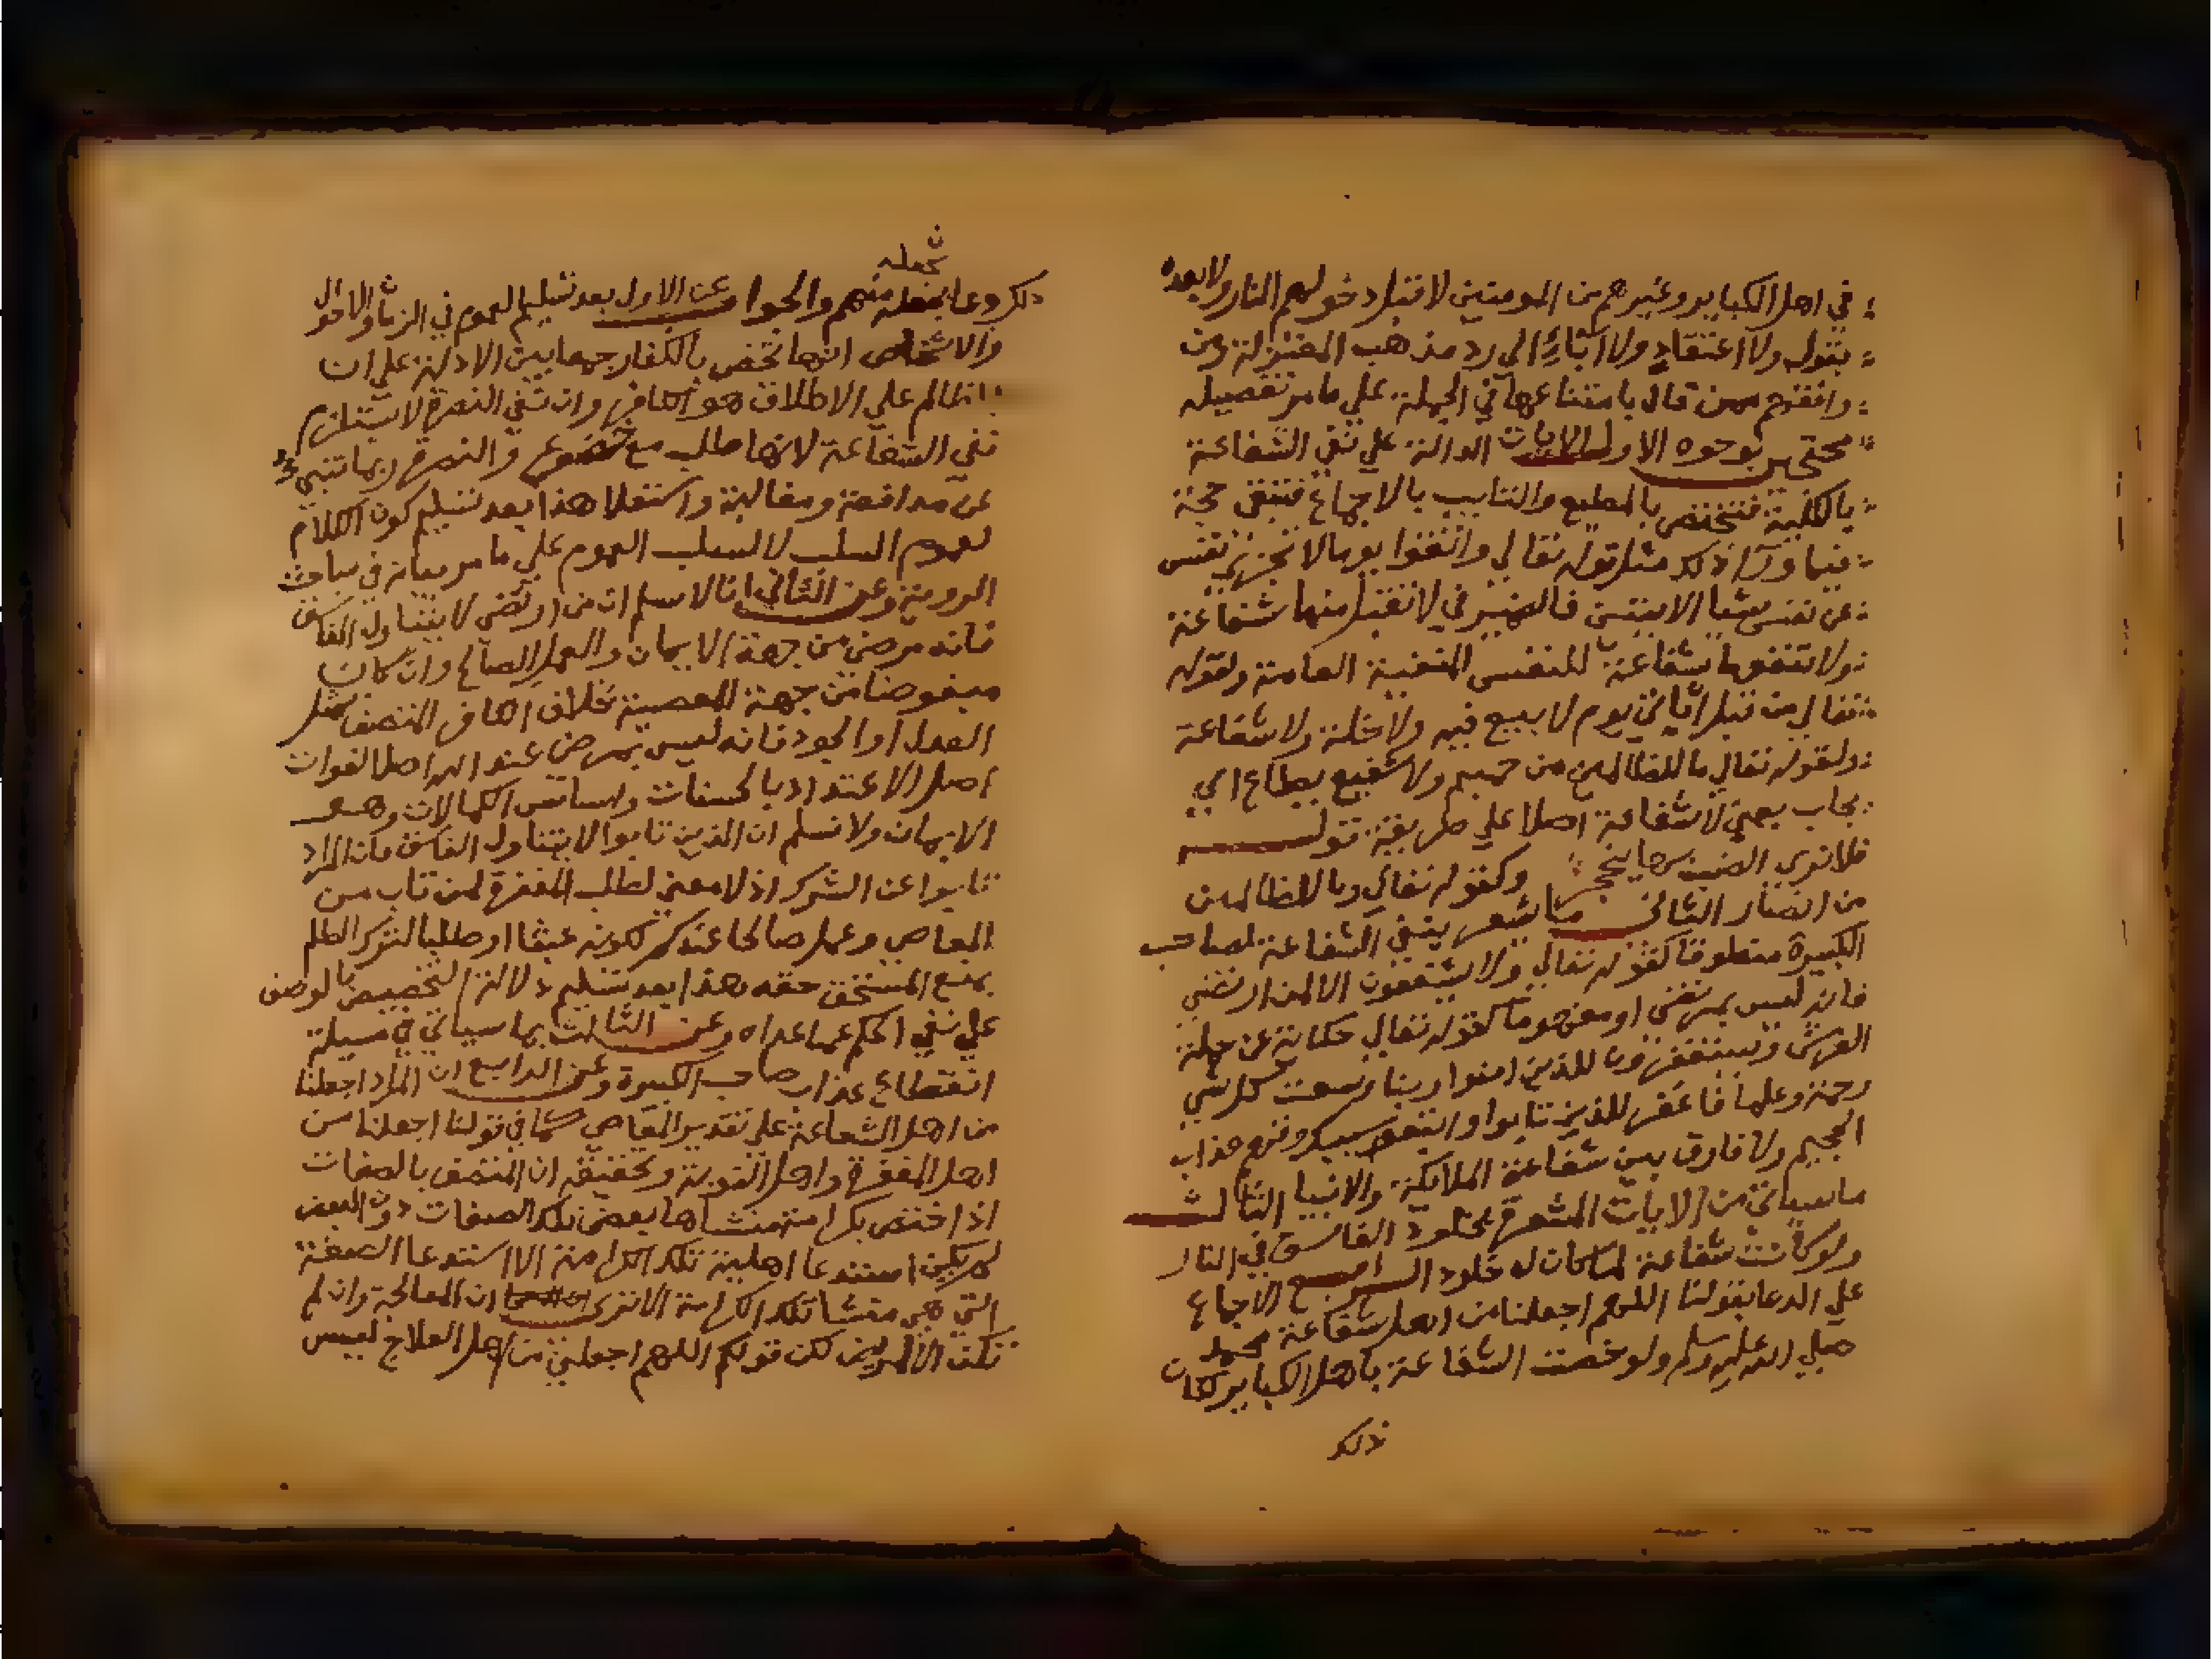 في اهل الكباير وغيرهم من المومنين لا قبل دخولهم النار ولا بعده
بقوله ولا اعتقاد ولا اباء الي رد مذهب المعتزلة ومن
وافقهم ممن قال بامتناعها في الجملة علي ما مر تفصيله
محتجين بوجوه الاول الايات الدالة علي نفي الشفاعة
بالكلية فتختص بالمطيع والتايب بالاجماع فتبقي حجة
فيما ورا ذلك مثل قوله تعالي واتقوا يوما لا تجزي نفس
عن نفس شيا الايتين فالضمير في لا تقبل منها شفاعة
ولا تنفعها شفاعة للنفس المنفية العامة ولقوله
تعالي من قبل ان ياتي يوم لا بيع فيه ولا خلة ولا شفاعة
ولقوله تعالي ما للظالمين من حميم ولا شفيع يطاع اي
يجاب يعني لا شفاعة اصلا علي طريقة قوله
فلا تري الضب بها ينجحر وكقوله تعالي وما للظالمين
من انصار الثاني ما اشعر بنفي الشفاعة لصاحب
الكبيرة منطوقا كقوله تعالي ولا يشفعون الا لمن ارتضي
فانه ليس بمرتضي او مفهوما كقوله تعالي حكاية عن حملة
العرش ويستغفرون للذين امنوا ربنا وسعت كل شي
رحمة وعلما فاغفر للذين تابوا واتبعوا سبيلك وقهم عذاب
الجحيم ولا فارق بين شفاعة الملايكة والانبيا الثالث
ما سياتي من الايات المشعرة بخلود الفاسق في النار
ولو كانت شفاعة لما كان له خلود الرابع الاجماع
علي الدعا بقولنا اللهم اجعلنا من اهل شفاعة محمد
صلي الله عليه وسلم ولو خصت الشفاعة باهل الكباير لكان
ذلك
ذلك دعا بجعله منهم والجواب عن الاول بعد تسليم العموم في الزمان والاحوال
والاشخاص انها تخص بالكفار جمعا بين الادلة علي ان
الظالم علي الاطلاق هو الكافر وان نفي النصرة لا يستلزم
نفي الشفاعة لانها طلب مع خضوع والنصرة ربما تنبي
عن مدافعة ومغالبة واستعلا هذا بعد تسليم كون الكلام
لعموم السلب لا لسلب العموم علي ما مر بيانه في مباحث
الروية وعن الثاني انا لا نسلم ان من ارتضي لا يتناول الفاسق
فانه مرضي من جهة الايمان والعمل الصالح وان كان
مبغوضا من جهة المعصية بخلاف الكافر المتصف بمثل
العدل او الجود فانه ليس بمرضي عند الله اصلا لفوات
اصل الاعتداد بالحسنات واساس الكمالات وهو
الايمان ولا نسلم ان الذين تابوا لا يتناول الفاسق فان المراد
تابوا عن الشرك اذ لا معني لطلب المغفرة لمن تاب من
المعاصي وعمل صالحا عندكم لكونه عبثا او طلبا لترك الظلم
بمنع المستحق حقه هذا بعد تسليم دلالة التخصيص بالوصف
علي نفي الحكم عما عداه وعن الثالث بما سياتي في مسيلة
انقطاع عذاب صاحب الكبيرة وعن الرابع ان المراد اجعلنا
من اهل الشفاعة علي تقدير المعاصي كما في قولنا اجعلنا من
اهل المغفرة واهل التوبة وتحقيقه ان المتصف بالصفات
اذا اختص بكرامة منشاها بعض تلك الصفات دون البعض
لم يكن استدعا اهلية تلك الكرامة الا استدعا الصفة
التي هي منشا تلك الكرامة الا تري ان المعالجة وان لم
تكن الا للمريض لكن قولكم اللهم اجعلني من اهل العلاج ليس